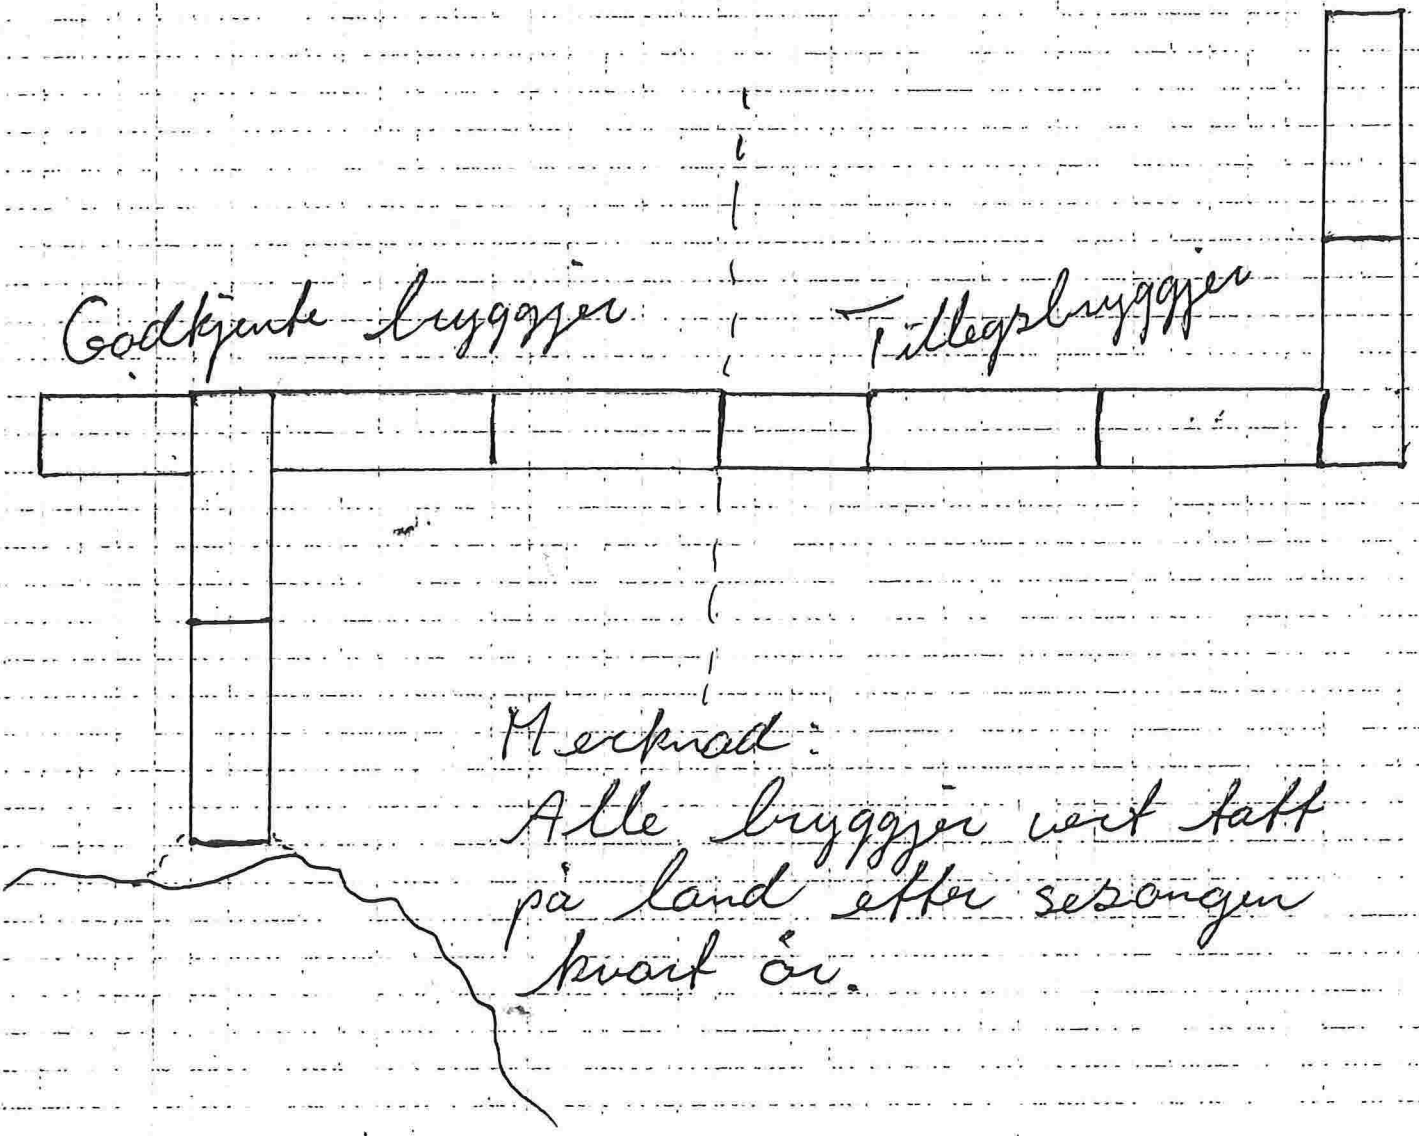 Godkjente bryggjer
Tilleggsbryggjer
Merknad:
Alle bryggjer vert tatt
på land etter sesongen
kvart år.